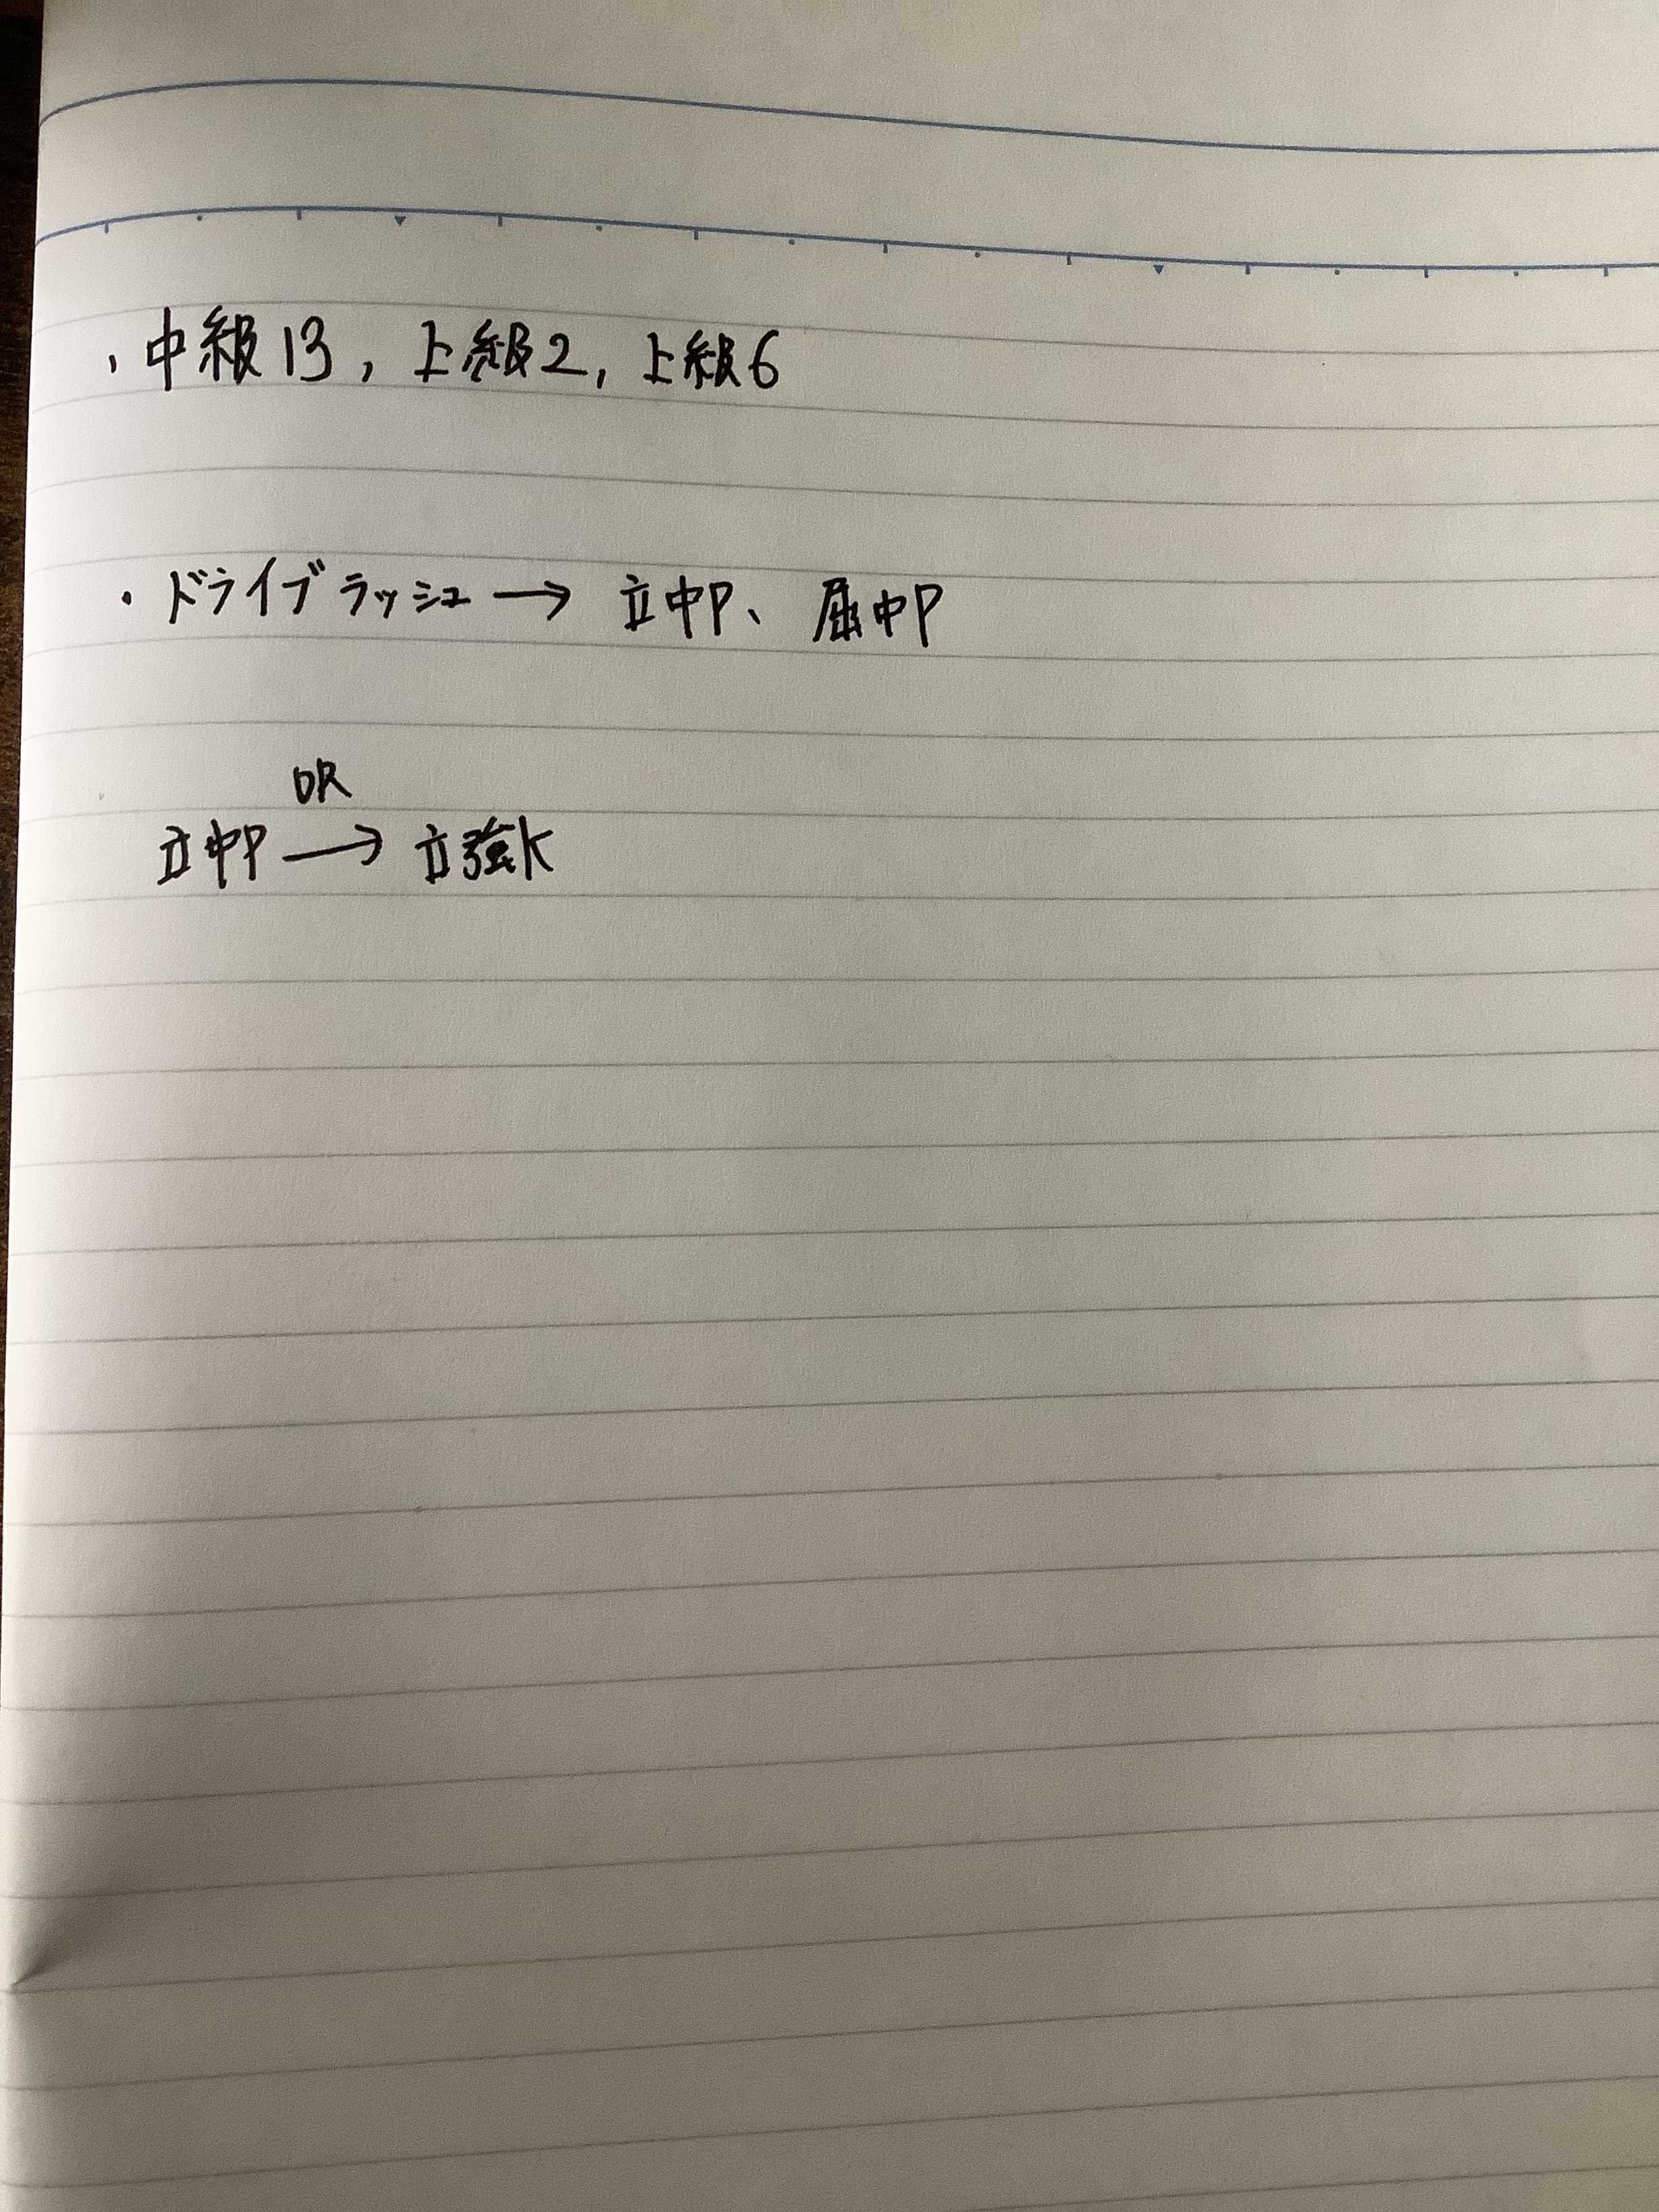 ・中級13, 上級2, 上級6
・ドライブラッシュ → 立中P、屈中P
DR
立中P → 立強K